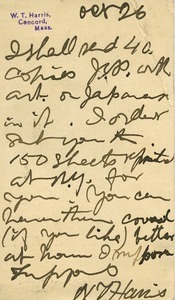 W. T. Harris,
Concord,
Mass.
Oct 26
I shall need 40
copies J.P. with
art. on Japanese
in it. I order
150 sheets
at N.Y. for
you. You can
have them covered
(if you like) better
at home I suppose
W T Harris